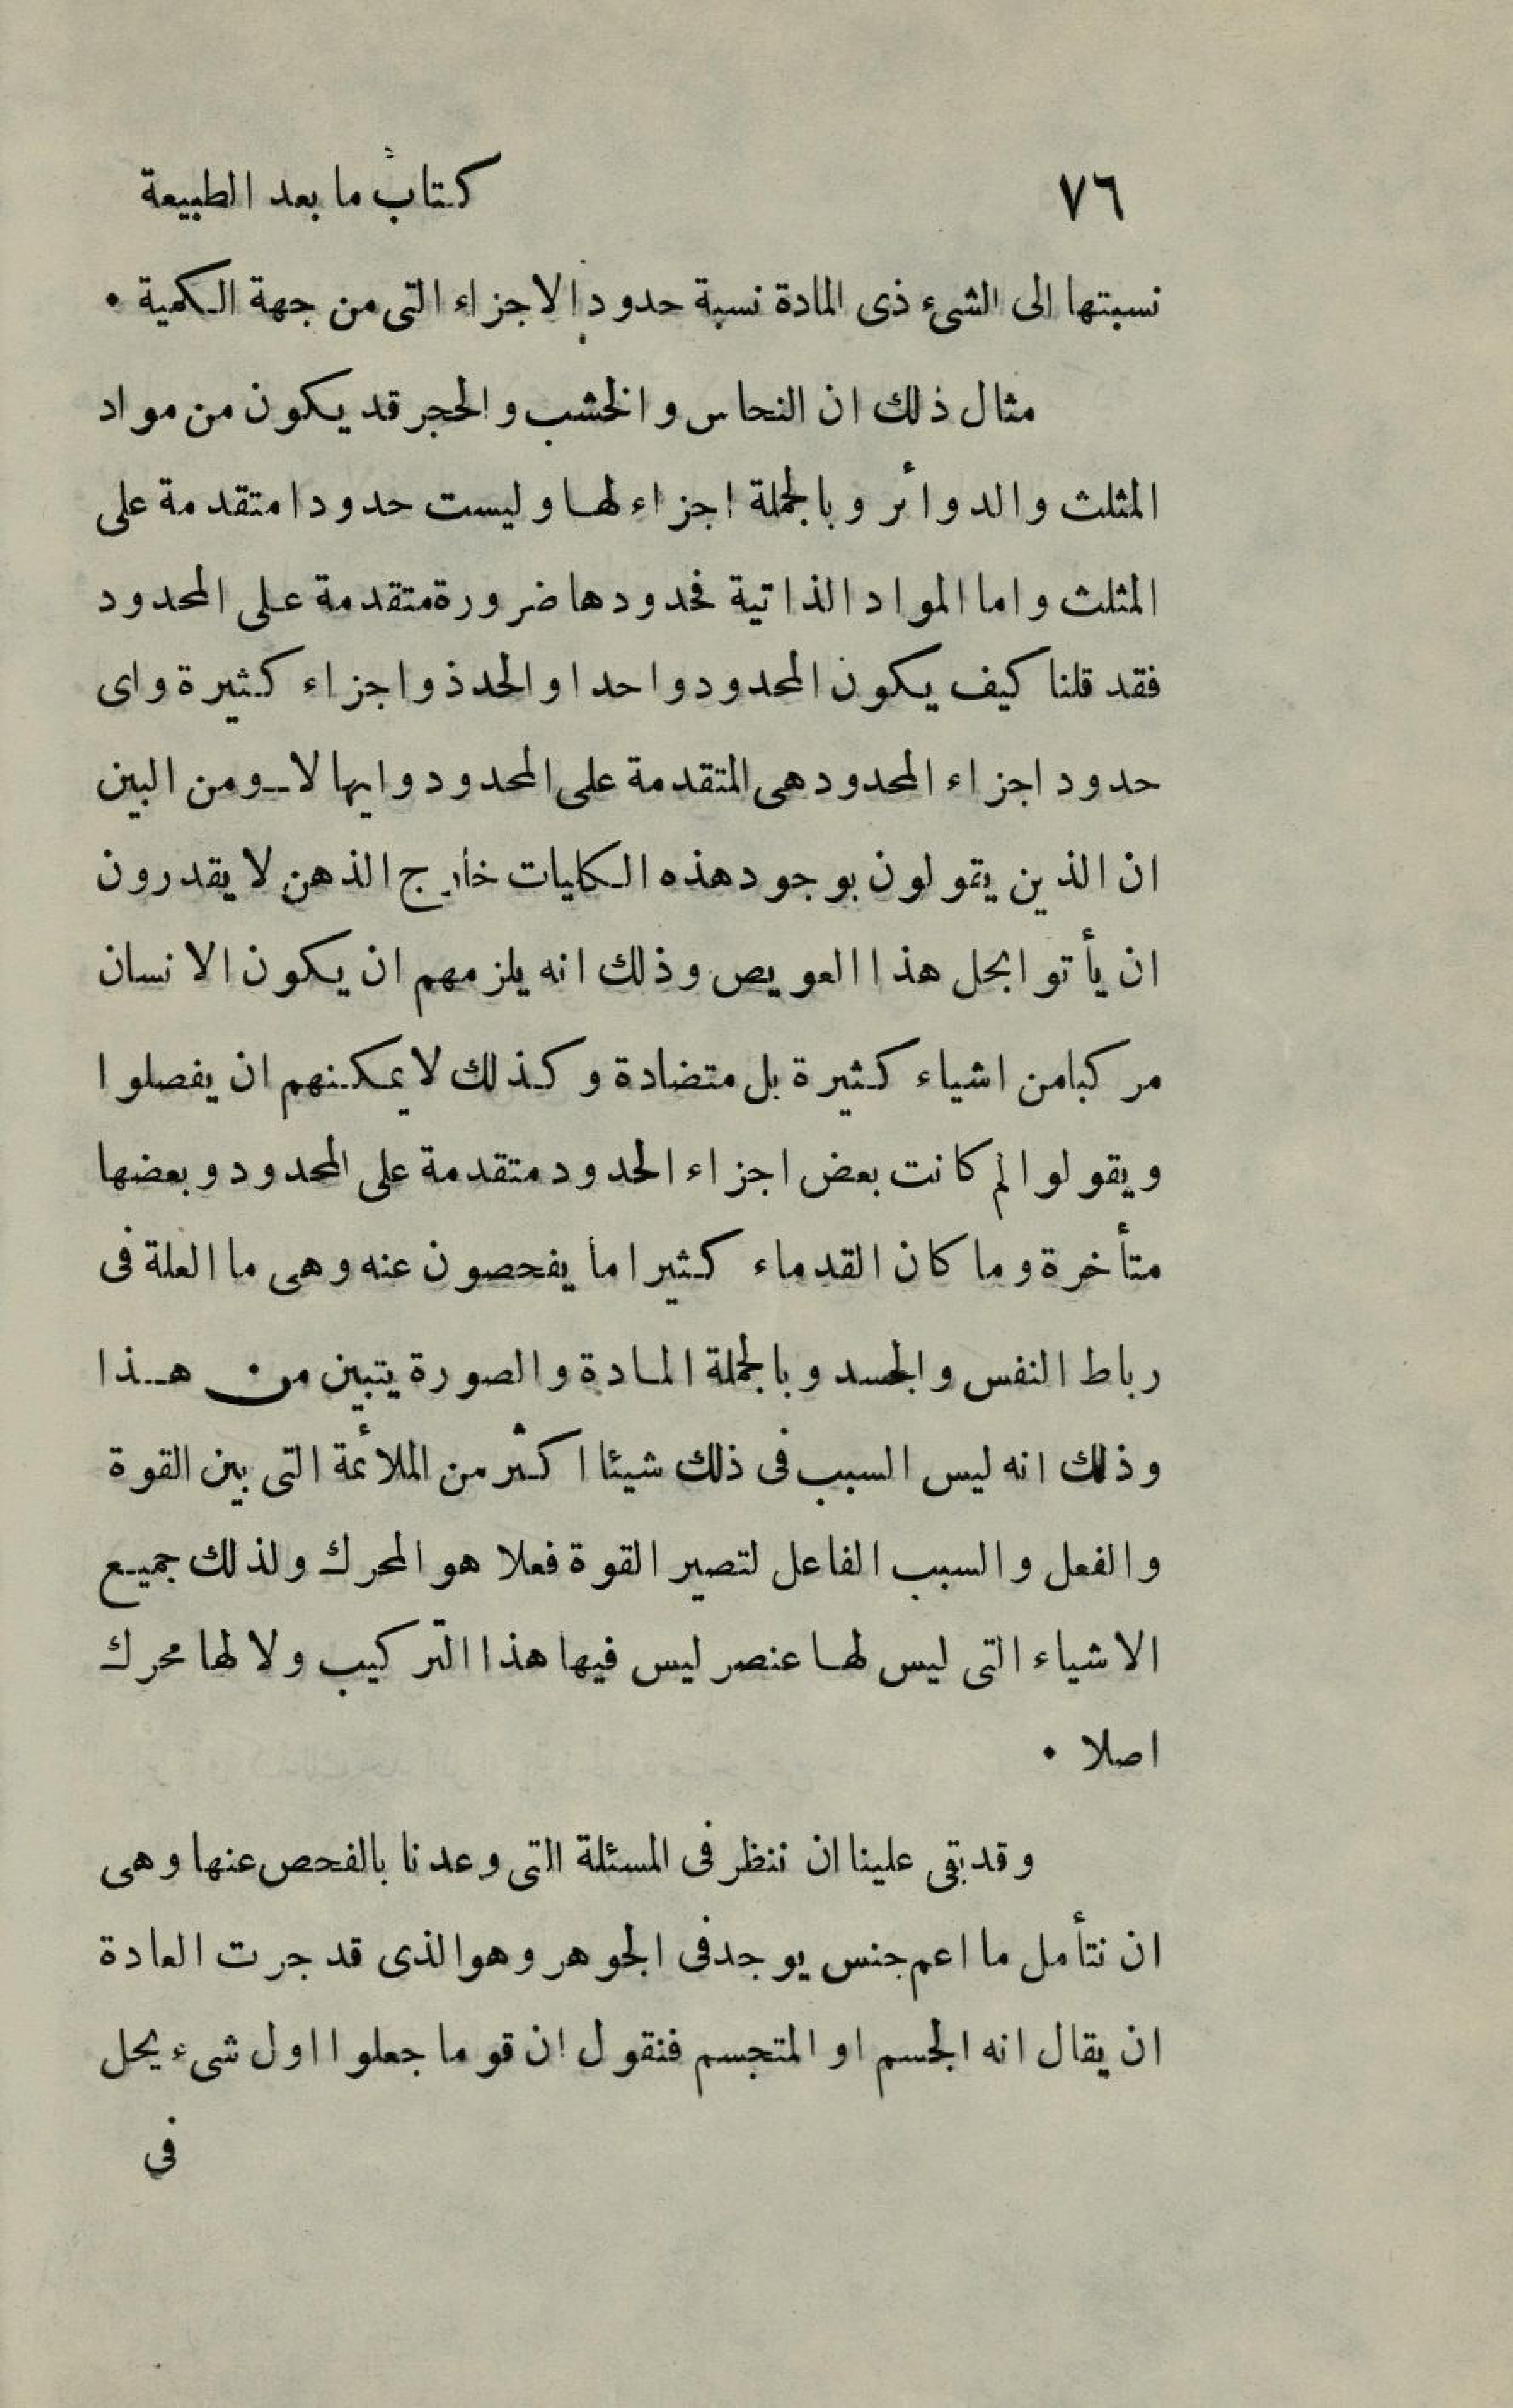 ٧٦ كتاب ما بعد الطبيعة
نسبتها الى الشىء ذى المادة نسبة حدود الاجزاء التى من جهة الكمية •
مثال ذلك ان النحاس والخشب والحجر قد يكون من مواد
المثلث والدوائر وبالجملة اجزاء لها وليست حدودا متقدمة على
المثلث واما المواد الذاتية فحدودها ضرورة متقدمة على المحدود
فقد قلنا كيف يكون المحدود واحدا والحد ذو اجزاء كثيرة واى
حدود اجزاء المحدود هى المتقدمة على المحدود وايها لا – ومن البين
ان الذين يقولون بوجود هذه الكليات خارج الذهن لا يقدرون
ان يأتوا بحل هذا العويص وذلك انه يلزمهم ان يكون الانسان
مركبا من اشياء كثيرة بل متضادة وكذلك لا يمكنهم ان يفصلوا
ويقولوا لم كانت بعض اجزاء الحدود متقدمة على المحدود وبعضها
متأخرة وما كان القدماء كثيرا ما يفحصون عنه وهى ما العلة فى
رباط النفس والجسد وبالجملة المادة والصورة يتبين من هذا
وذلك انه ليس السبب فى ذلك شيئا اكثر من الملائمة التى بين القوة
والفعل والسبب الفاعل لتصير القوة فعلا هو المحرك ولذلك جميع
الاشياء التى ليس لها عنصر ليس فيها هذا التركيب ولا لها محرك
اصلا •
وقد بقى علينا ان ننظر فى المسئلة التى وعدنا بالفحص عنها وهى
ان نتأمل ما اعم جنس يوجد فى الجوهر وهو الذى قد جرت العادة
ان يقال انه الجسم او المتجسم فنقول ان قوما جعلوا اول شىء يحل
فى